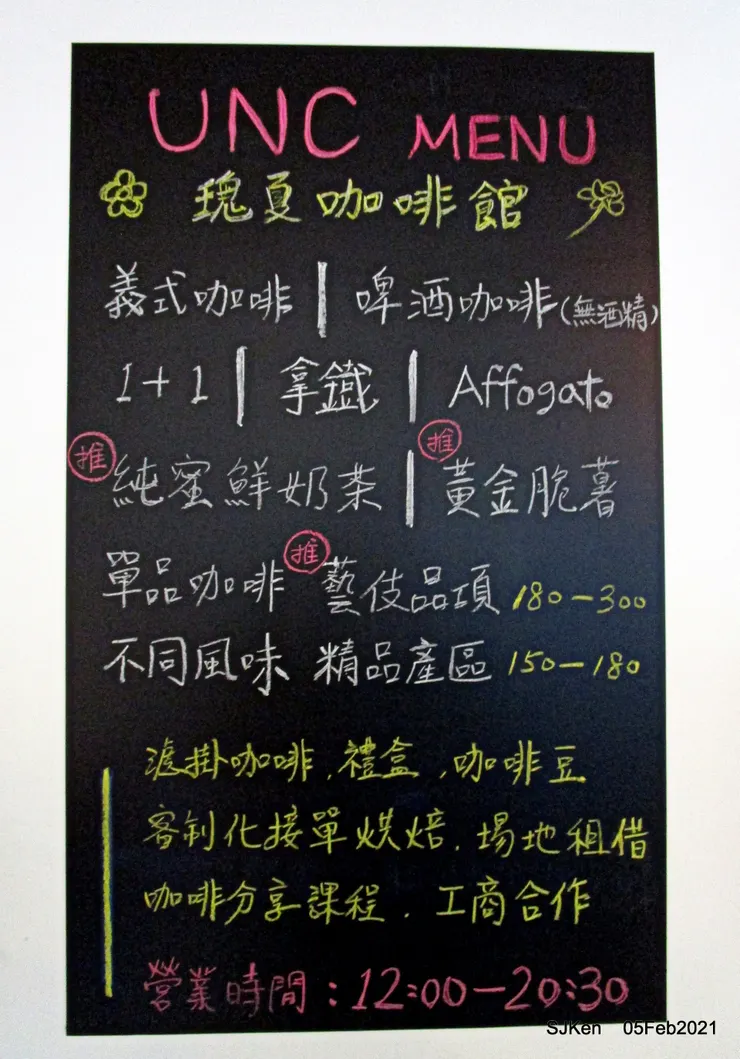 UNC MENU
瑰夏咖啡館
義式咖啡 | 啤酒咖啡(無酒精)
1+1 | 拿鐵 | Affogato
推 純蜜鮮奶茶 | 推 黃金脆薯
單品咖啡 推 藝伎品項 180-300
不同風味 精品產區 150-180
濾掛咖啡.禮盒.咖啡豆
客制化接單烘焙.場地租借
咖啡分享課程.工商合作
營業時間:12:00-20:30
SJKen 05Feb2021